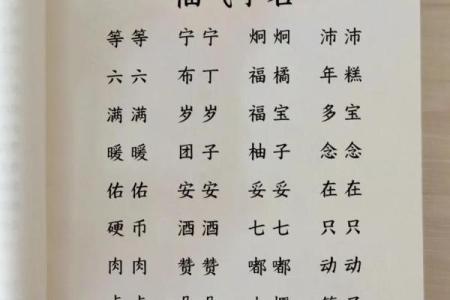 等等 宁宁 炯炯 沛沛
六六 布丁 福橘 年糕
满满 岁岁 福宝 多宝
暖暖 团子 柚子 念念
佑佑 安安 妥妥 在在
硬币 酒酒 七七 只只
肉肉 赞赞 嘟嘟 动动